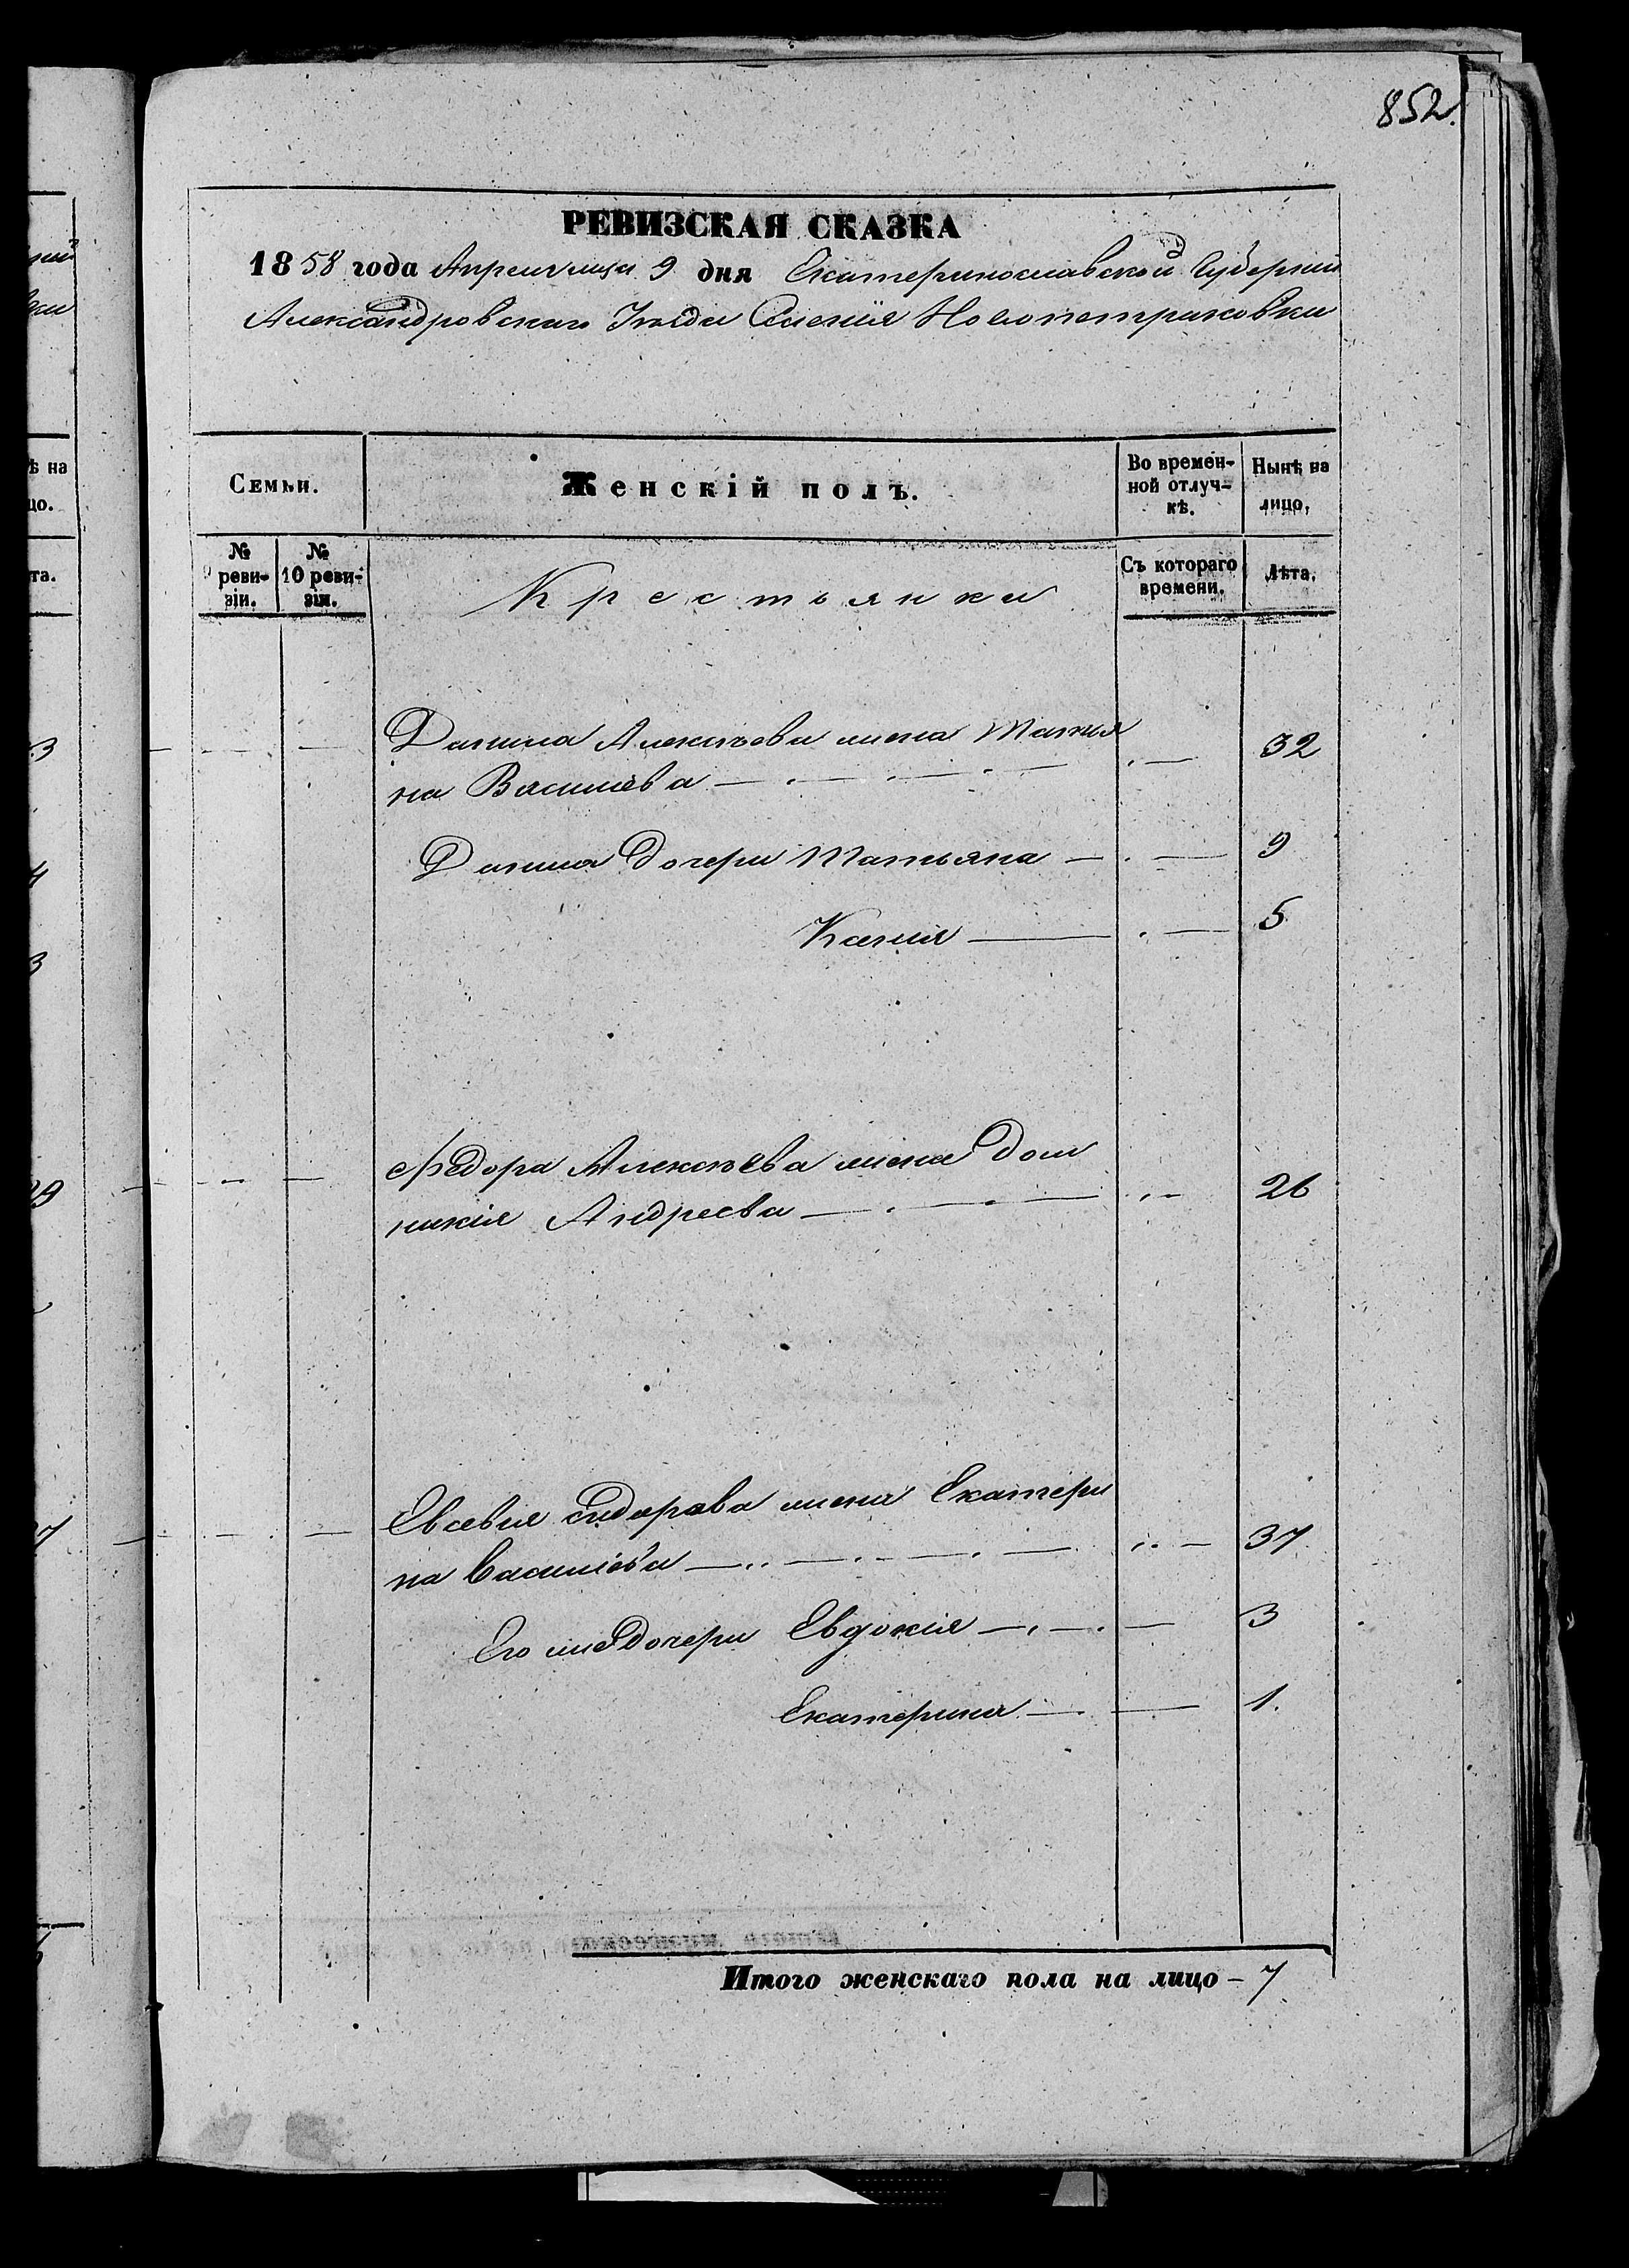 852.
РЕВИЗСКАЯ СКАЗКА
1858 года Апреля мца 9 дня Екатеринославской Губернии
Александровскаго Уезда Селенія Новопетриковки
Семьи.
Женскій полъ.
Во времен-
ной отлуч-
кѣ.
Нынѣ на
лицо.
№
реви-
зіи.
№
10 реви-
зіи.
Крестьянки
Съ котораго
времени.
Лѣта.
Данила Алексѣева жена Татья
на Васильева 32
Данила дочери Татьяна 9
Ксенія 5
Федора Алексѣева жена Дом
никія Андреева 26
Евсевія Сидорова жена Екатери
на Васильева 37
Его же дочери Евдокія 3
Екатерина 1.
Итого женскаго пола на лицо - 7